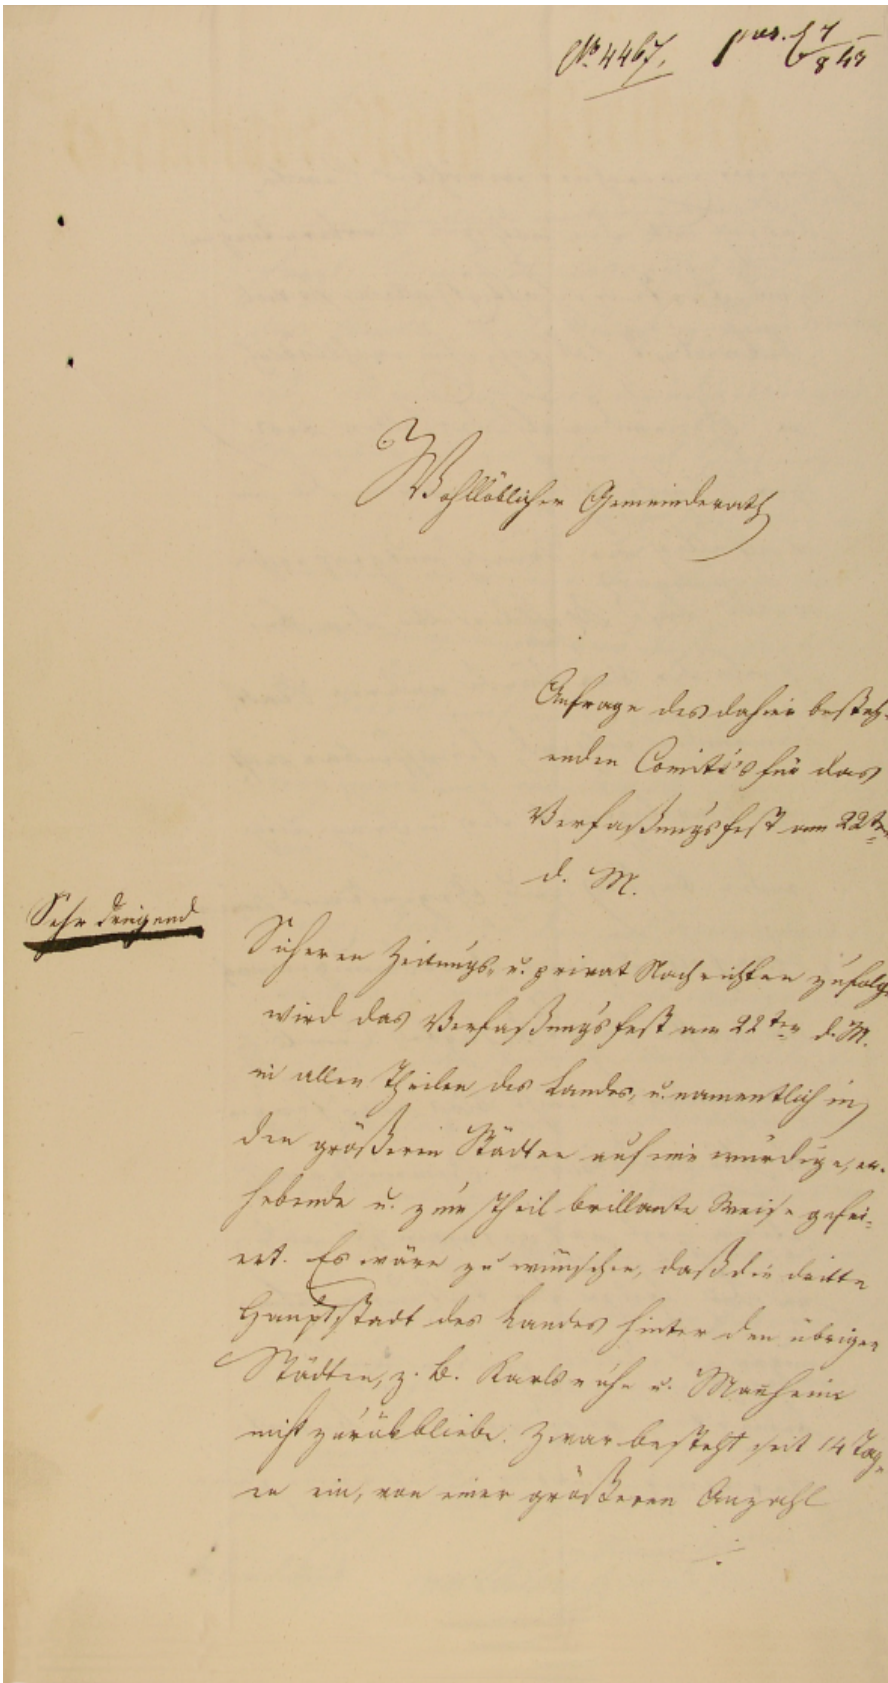 No 4467. pr. 17/8 43
Wohllöblicher Gemeinderath
Anfrage des dahier besteh-
enden Comité's für das
Verfaßungsfest am 22ten
d. M.
Sehr dringend
Sicheren Zeitungs- u. privat Nachrichten zufolge
wird das Verfaßungsfest am 22ten d. M.
in allen Theilen des Landes, u. namentlich in
den größeren Städten auf eine würdige, er-
hebende u. zum Theil brillante Weise gefei-
ert. Es wäre zu wünschen, daß die dritte
Hauptstadt des Landes hinter den übrigen
Städten, z. B. Karlsruhe u. Manheim
nicht zurükbliebe. Zwar besteht seit 14 Tag-
en ein, von einer größeren Anzahl